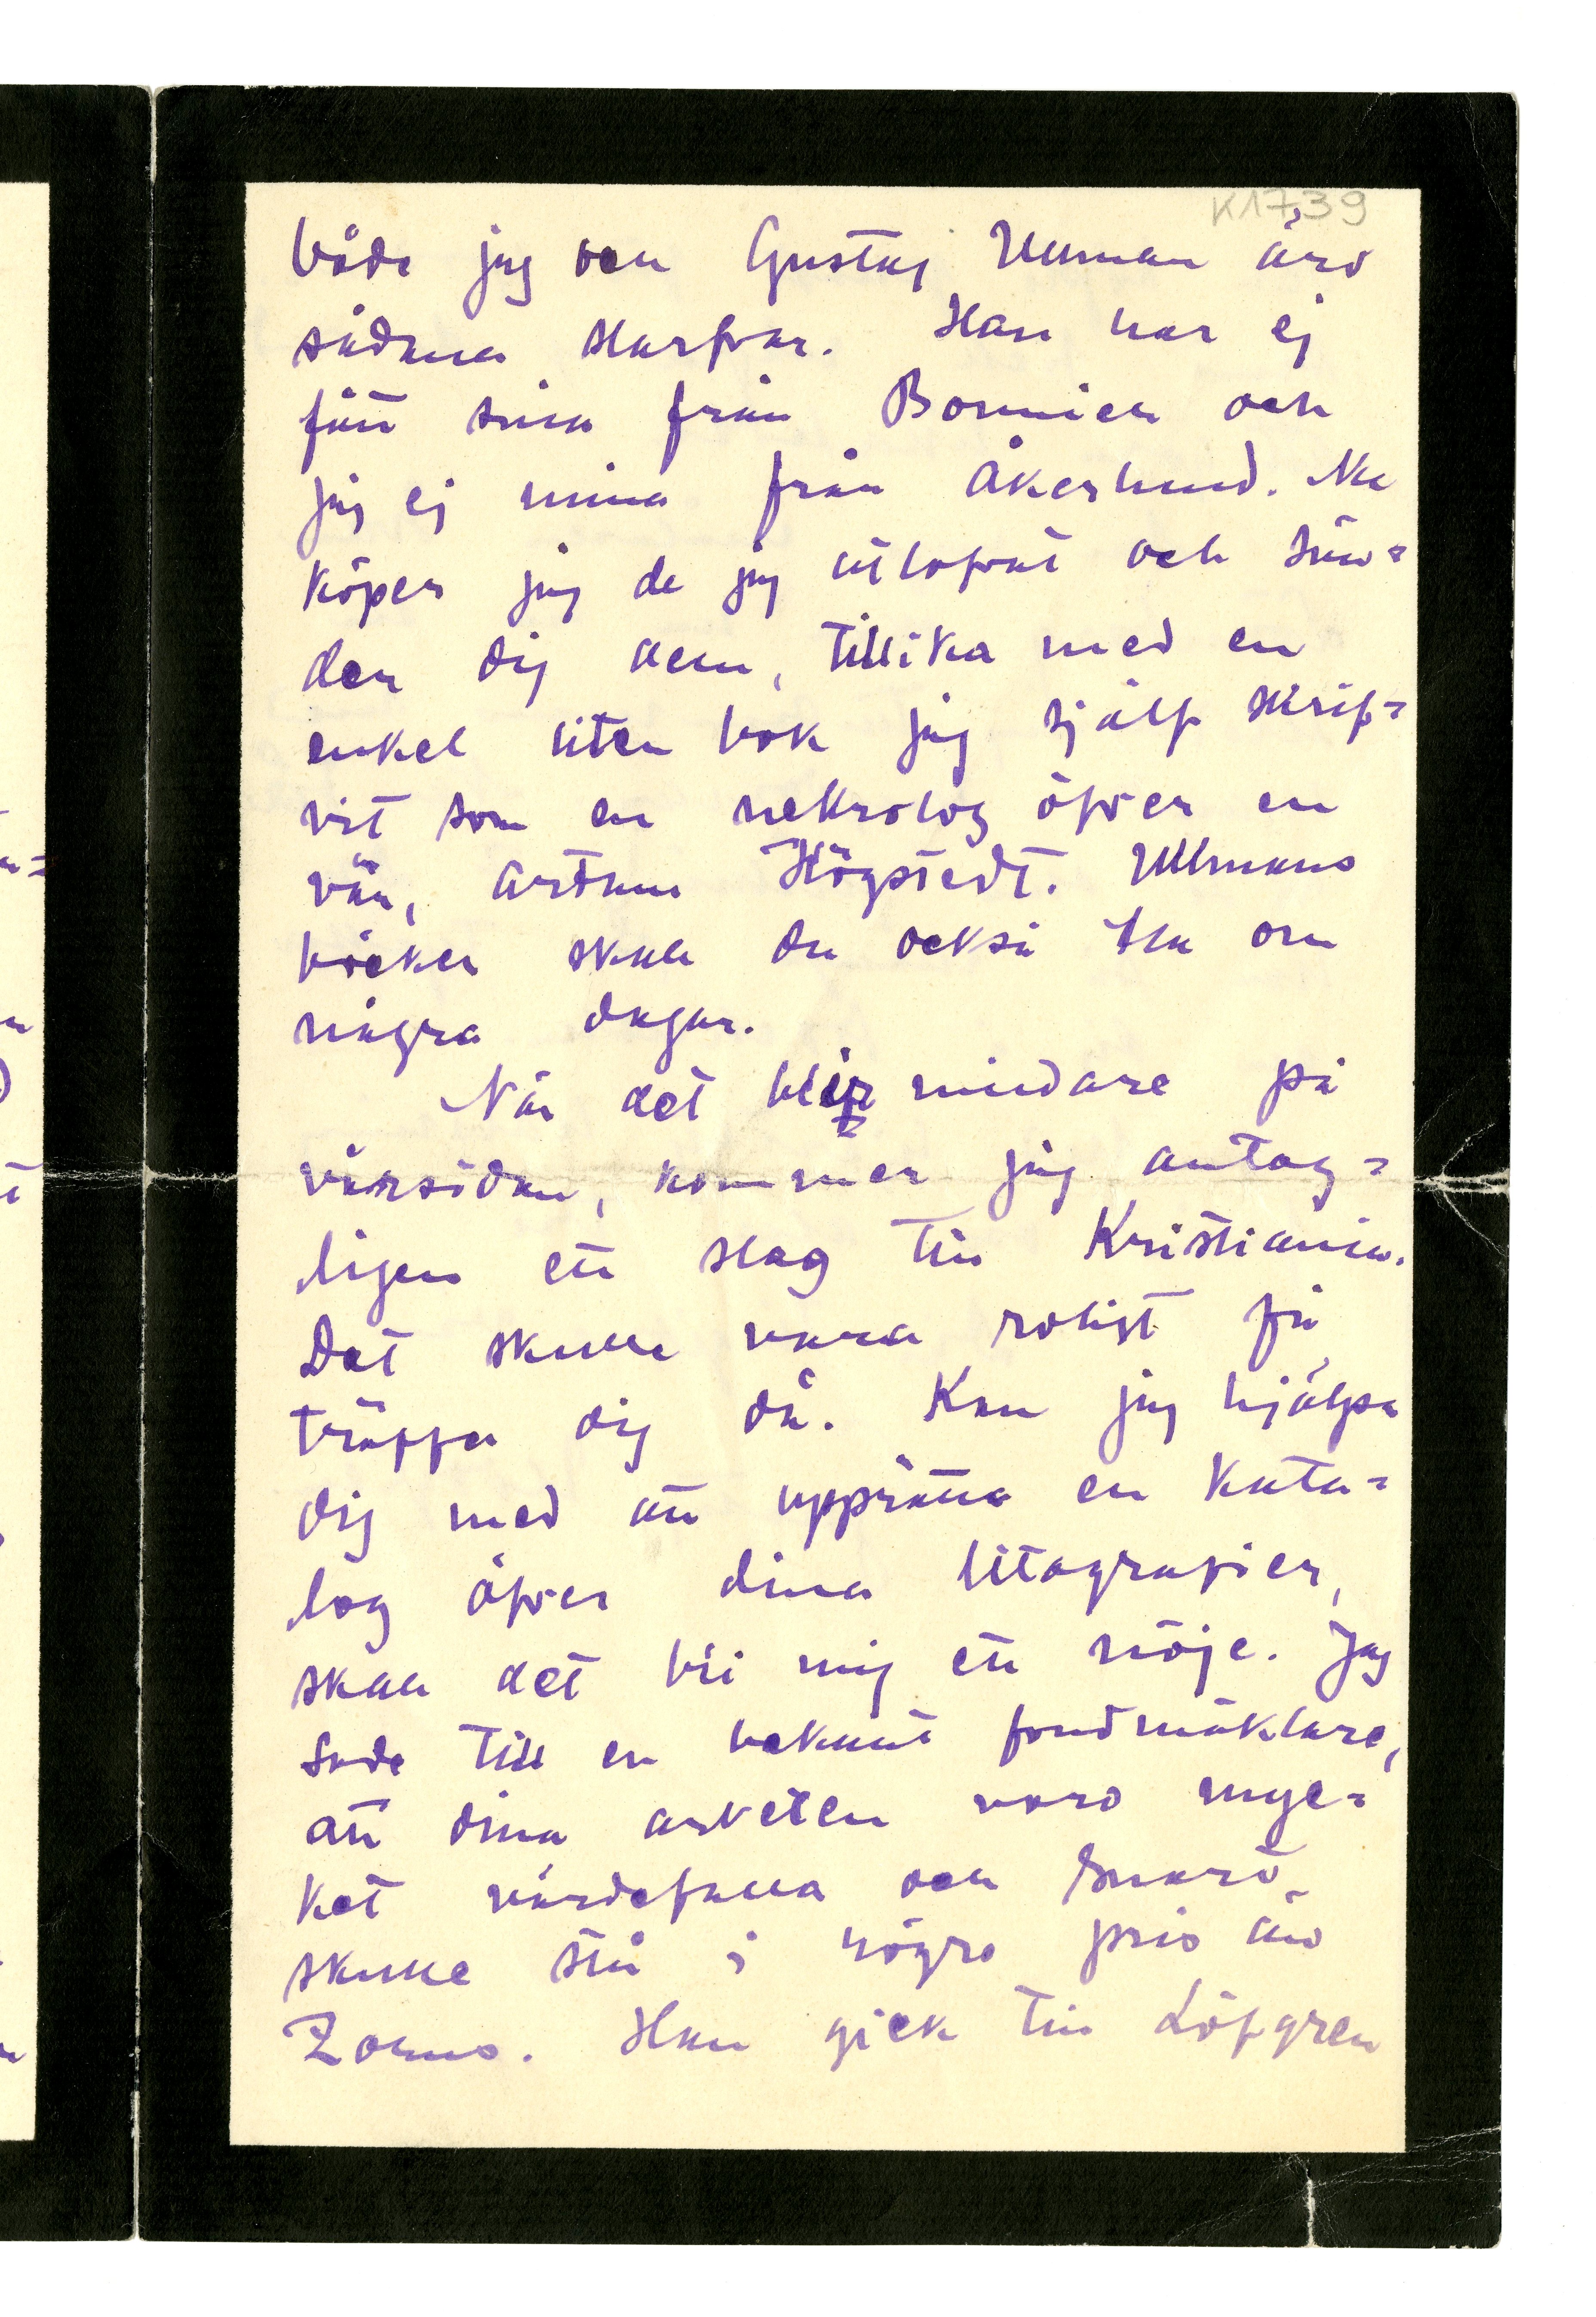 K1739
både jag och Gustaf Ullman äro
sådana slarfvar. Han har ej
fått sina från Bonnier och
jag ej mina från Åkerlund. Nu
köper jag de jag utlofvat och sän=
der dig dem, tillika med en
enkel liten bok jag själt skrif=
vit som en nekrolog öfver en
vän, Högstedt. Ullmans
böcker skall du också ha om
några dagar.
När det blir mildare på
vårsidan, kommer jag antag=
ligen ett slag till Kristiania.
Det skulle vara roligt få
träffa dig då. Kan jag hjälpa
dig med att upprätta en kata=
log öfver dina litografier,
skall det bli mig ett nöje. Jag
sade till en bekant fondmäklare,
att dina arbeten voro myc=
ket värdefulla och snart
skulle stå i högre pris än
Zorns. Han gick till Löfgren